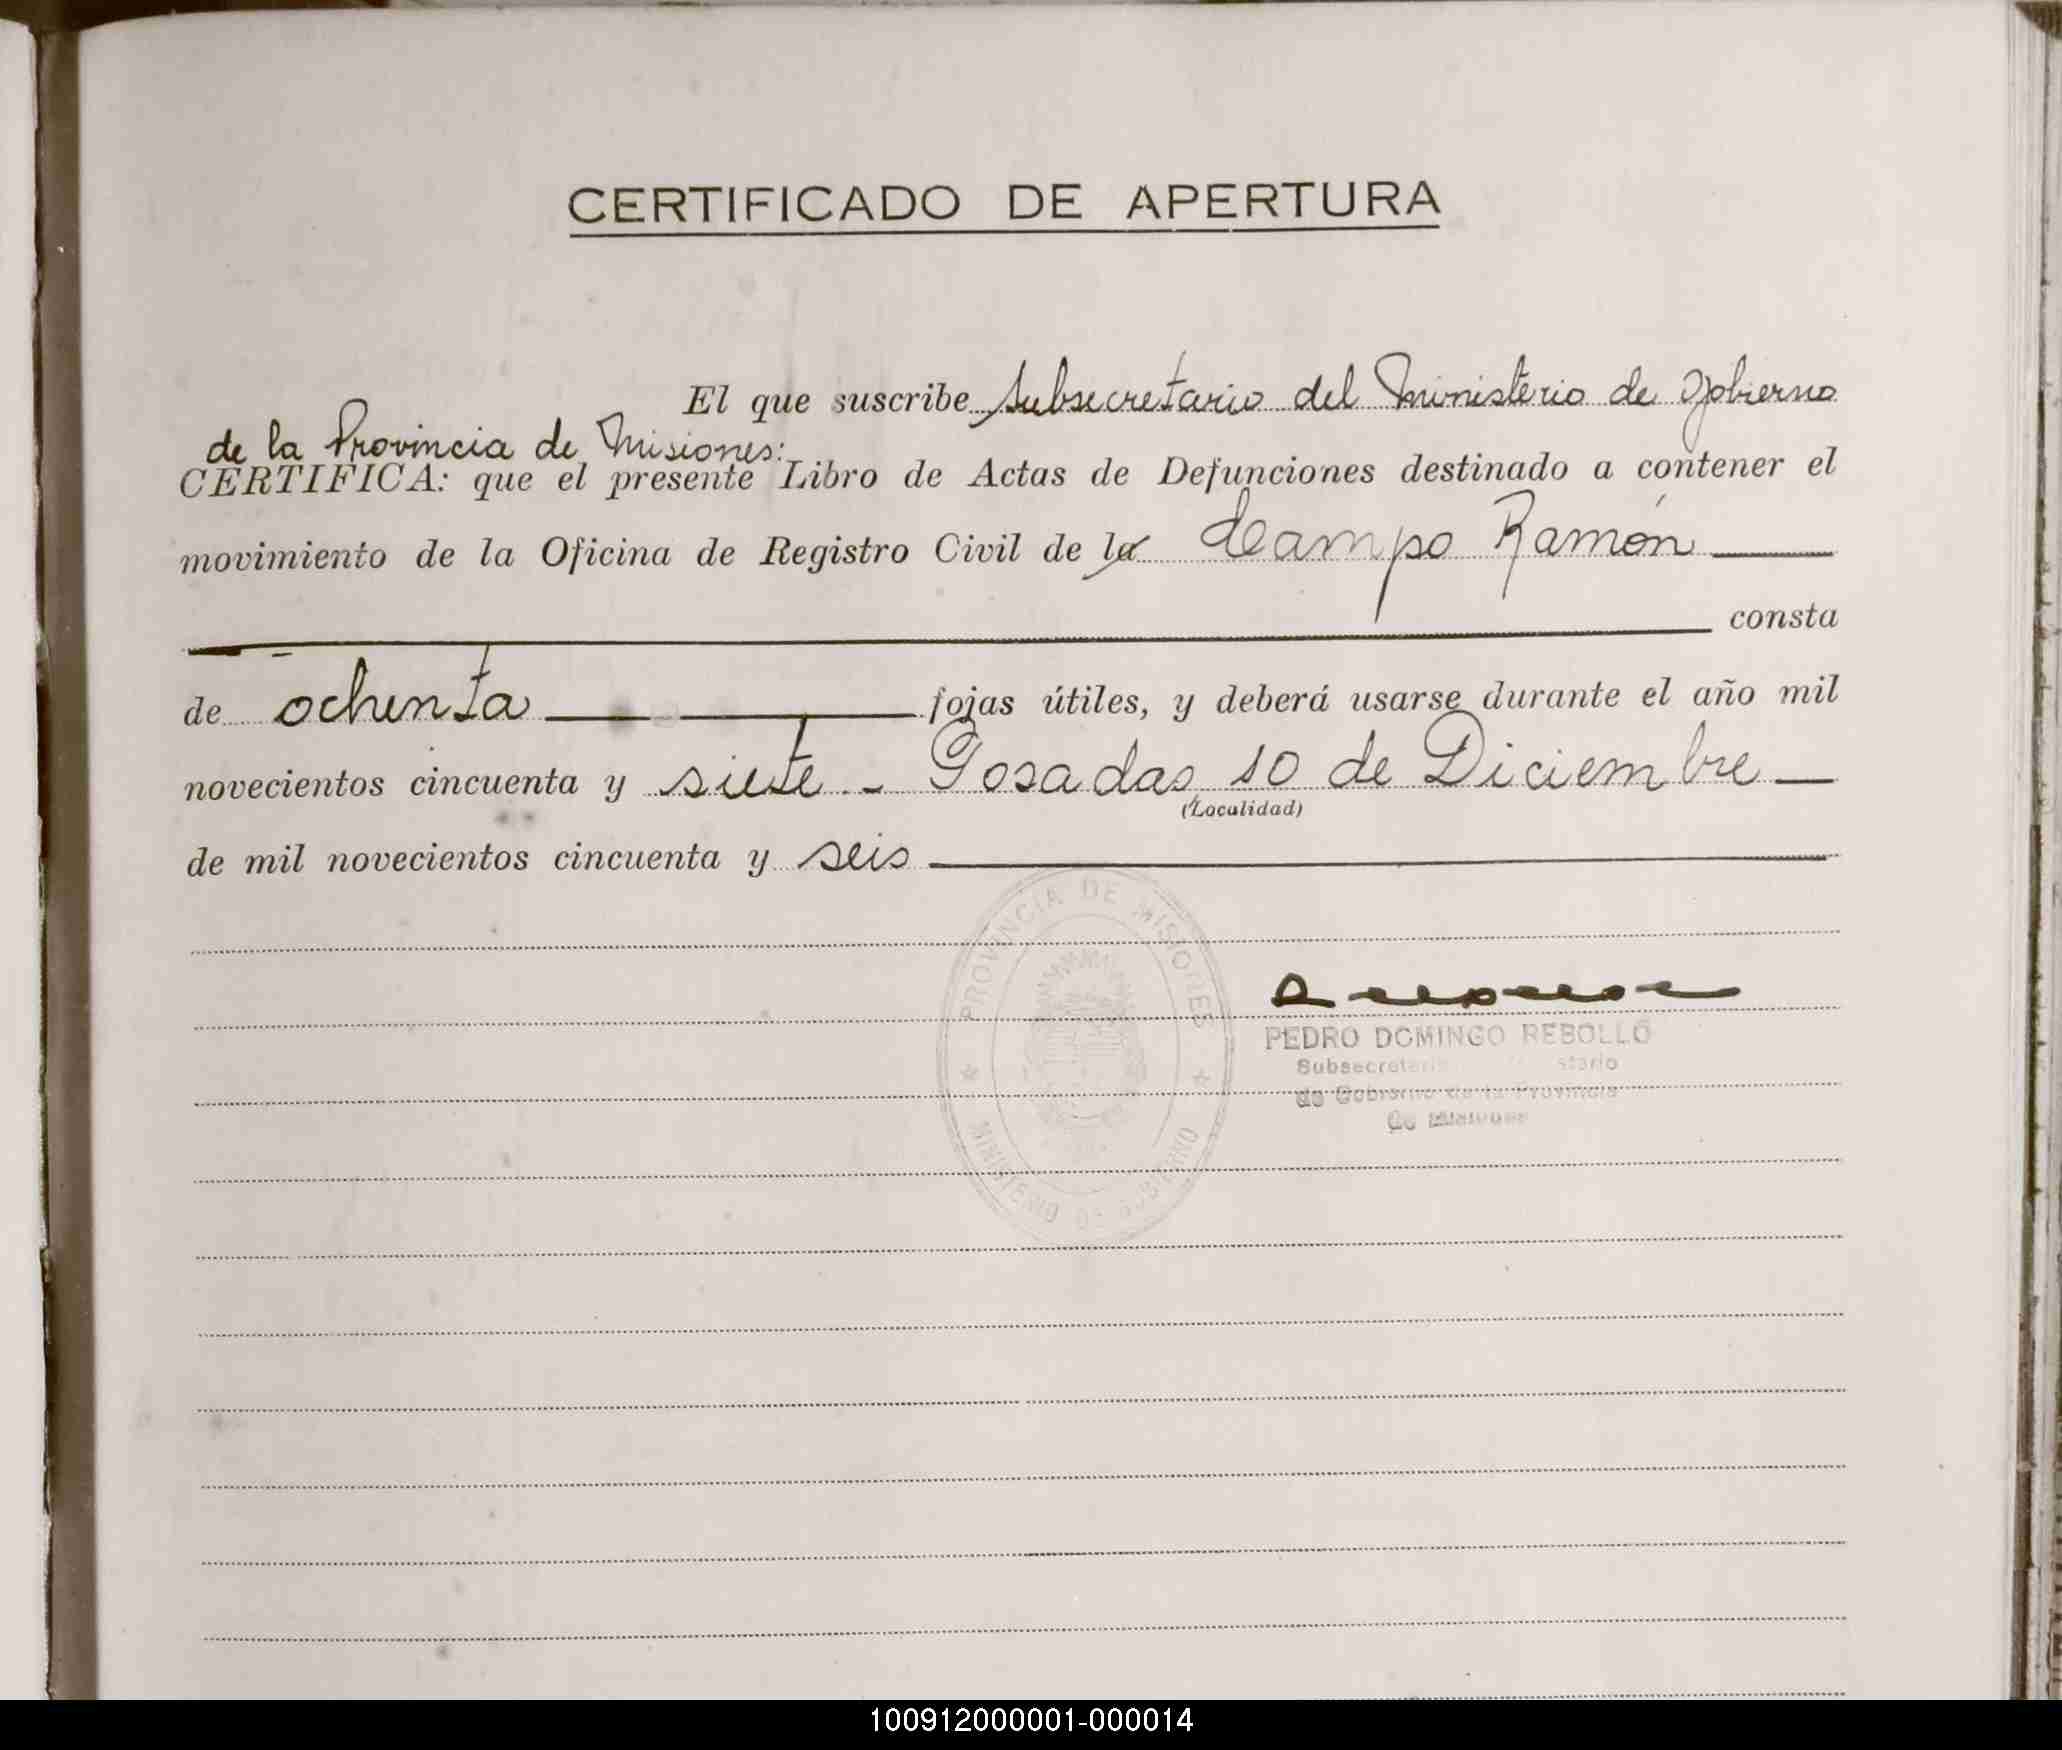 CERTIFICADO DE APERTURA
El que suscribe Subsecretario del Ministerio de Gobierno
de la Provincia de Misiones:
CERTIFICA: que el presente Libro de Actas de Defunciones destinado a contener el
movimiento de la Oficina de Registro Civil de la Campo Ramón
consta
de ochenta fojas útiles, y deberá usarse durante el año mil
novecientos cincuenta y siete - Posadas 10 de Diciembre
(Localidad)
de mil novecientos cincuenta y seis
PROVINCIA DE MISIONES
MINISTERIO DE GOBIERNO
PEDRO DOMINGO REBOLLO
de Gobierno de la Provincia
100912000001-000014